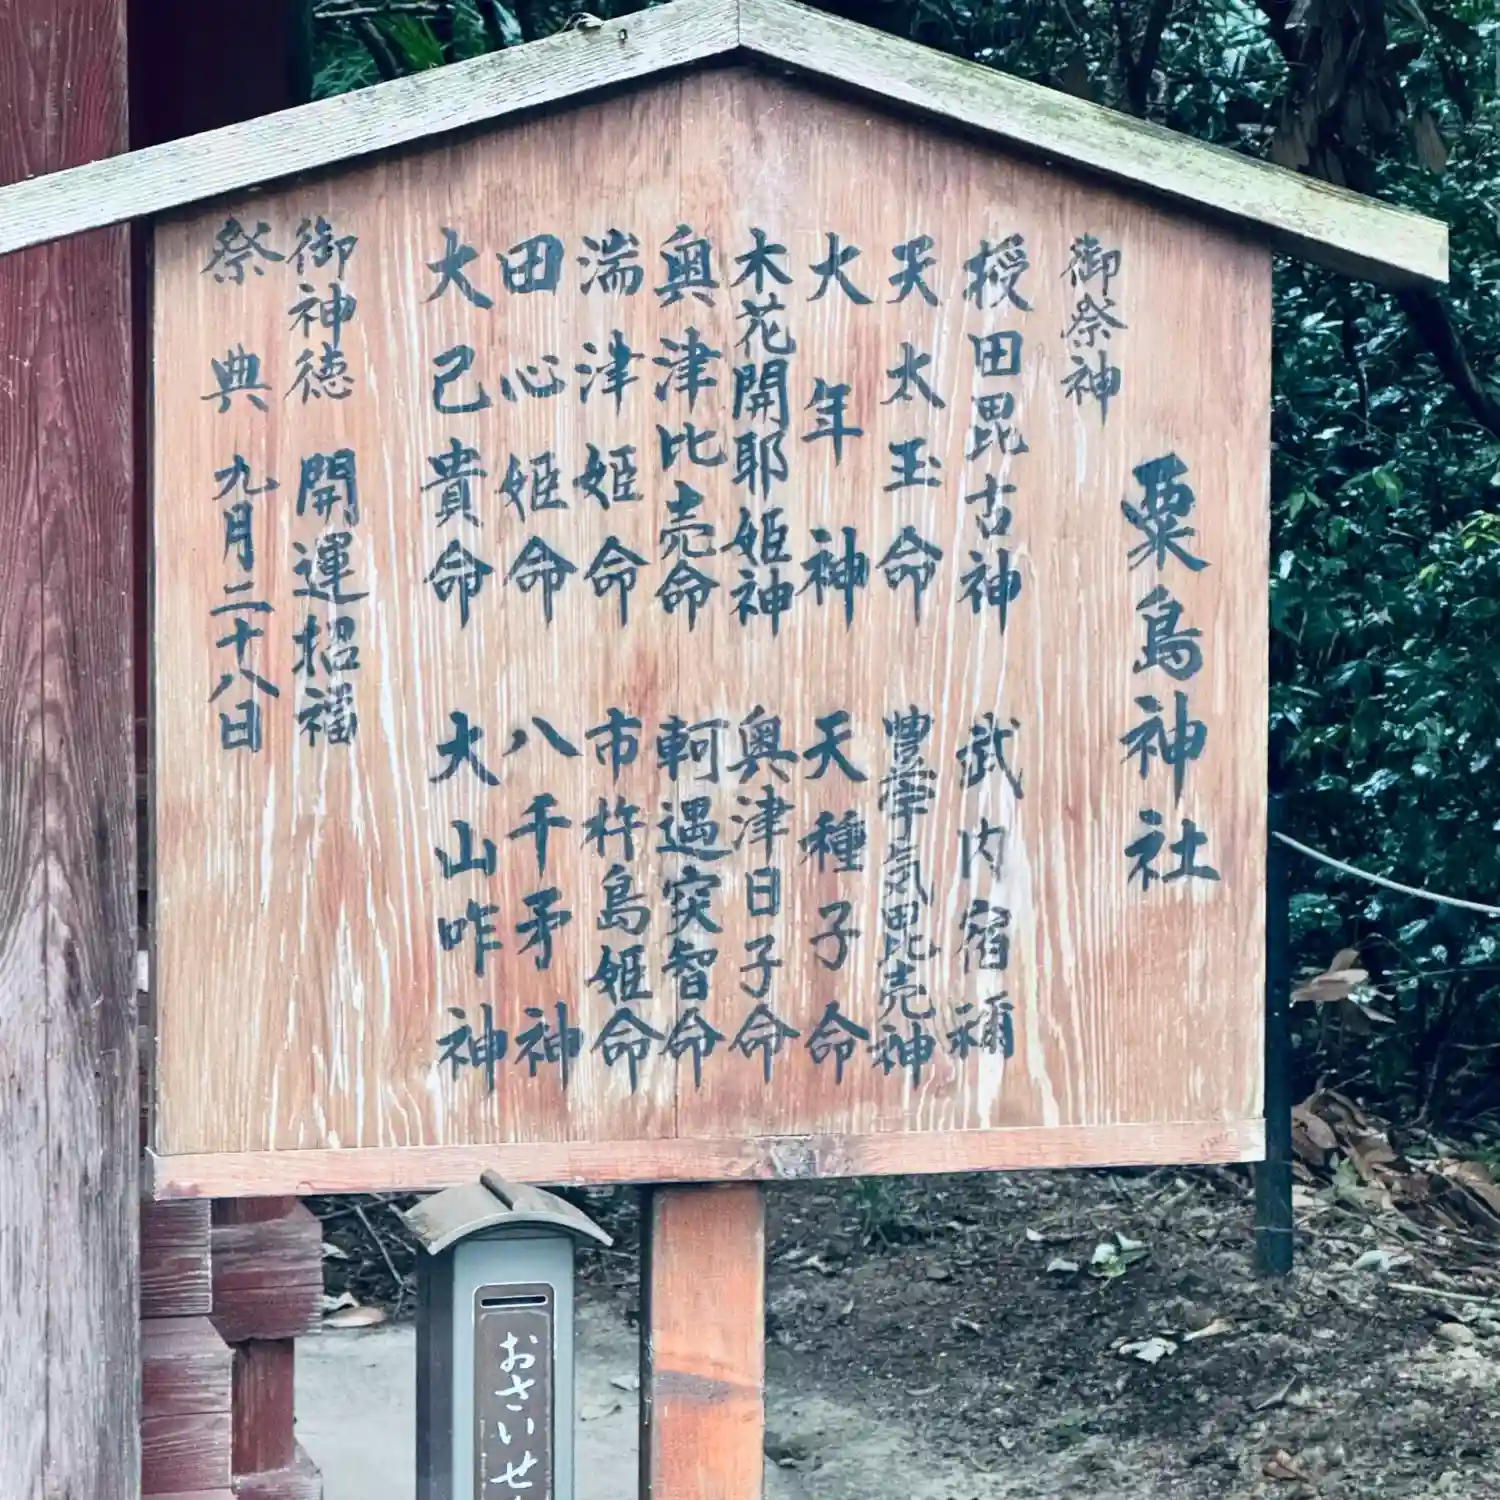 粟島神社
御祭神
授田毘古神　武内宿禰
天太玉命　豊宇気毘売神
大年神　天種子命
木花開耶姫神　奥津日子命
奥津比売命　軻遇突智命
湍津姫命　市杵島姫命
田心姫命　八千矛神
大己貴命　大山咋神
御神徳　開運招福
祭典　九月二十八日
おさいせ